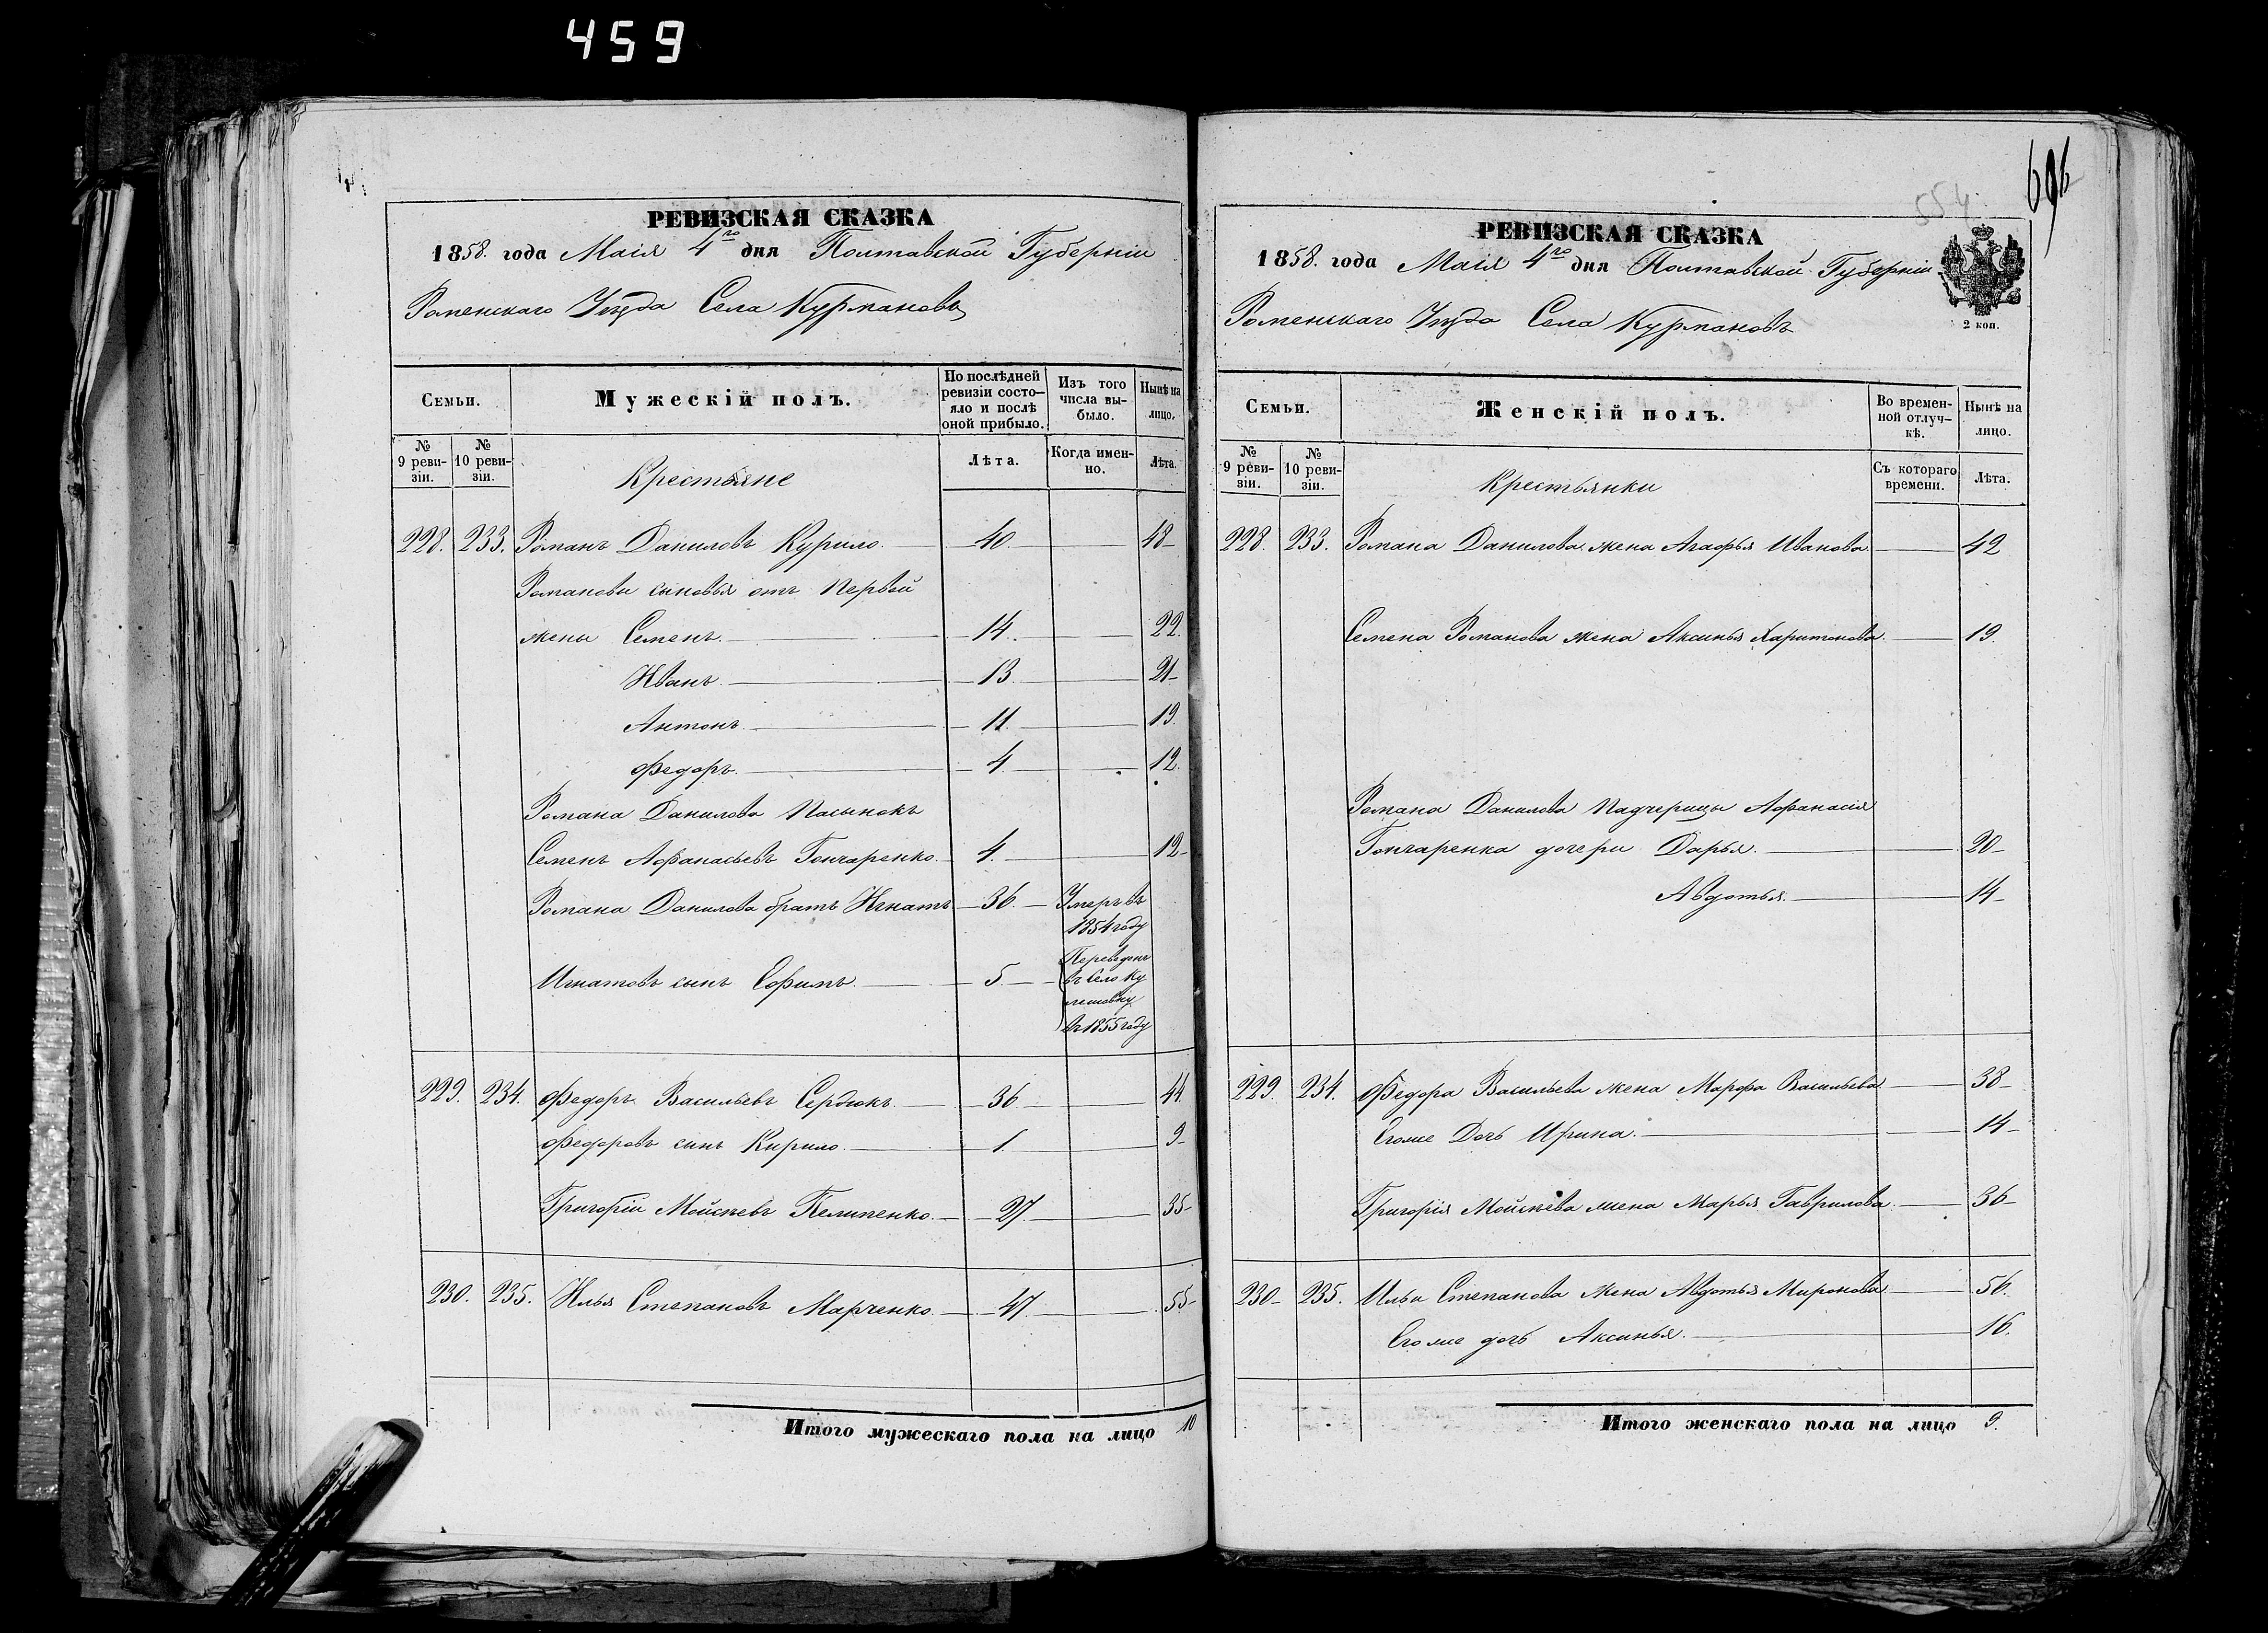 459
РЕВИЗСКАЯ СКАЗКА
1858. года Маія 4го дня Полтавской Губерніи
Роменскаго Уѣзда Села Курмановъ
Семьи.
Мужескій полъ.
По послѣдней ревизіи состо-
яло и послѣ
оной прибыло.
Изъ того
числа вы-
было.
Нынѣ на
лицо.
№
9 реви-
зіи.
№
10 реви-
зіи.
Крестьяне
Лѣта.
Когда имен-
но.
Лѣта.
228. 233. Романъ Даниловъ Курило. 40. 48
Романовы сыновья отъ первой
жены Семенъ. 14. 22.
Иванъ. 13. 21
Антонъ. 11. 19.
Федоръ. 4. 12.
Романа Данилова пасынокъ
Семенъ Афанасьевъ Гончаренко. 4. 12
Романа Данилова братъ Игнатъ 36. Умеръ въ
1854 году
Игнатовъ сынъ Ефимъ. 5 Переведенъ
въ село Ку
лешовку
въ 1855 году
229. 234. Федоръ Васильевъ Сердюкъ 36 44.
Федоровъ сынъ Кирило. 1. 9
Григорій Мойсѣевъ Пелипенко. 27. 35
230. 235. Илья Степановъ Марченко. 47. 55
Итого мужескаго пола на лицо 10
696
554
РЕВИЗСКАЯ СКАЗКА
1858. года Маія 4го дня Полтавской Губерніи
Роменскаго Уѣзда Села Курмановъ
2 коп.
Семьи.
Женскій полъ.
Во времен-
ной отлуч-
кѣ.
Нынѣ на
лицо.
№
9 реви-
зіи.
№
10 реви-
зіи.
Крестьянки
Съ котораго
времени.
Лѣта.
228. 233. Романа Данилова жена Агафья Иванова 42
Семена Романова жена Аксинья Харитонова 19.
Романа Данилова падчерицы Афанасія
Гончаренка дочери Дарья. 20
Авдотья. 14
229. 234. Федора Васильева жена Марфа Васильева 38
Егоже Дочь Ирина. 14
Григорія Мойсѣева жена Марья Гаврилова 36
230 235. Ильи Степанова жена Авдотья Миронова 56.
Егоже дочь Аксинья. 16.
Итого женскаго пола на лицо 9.